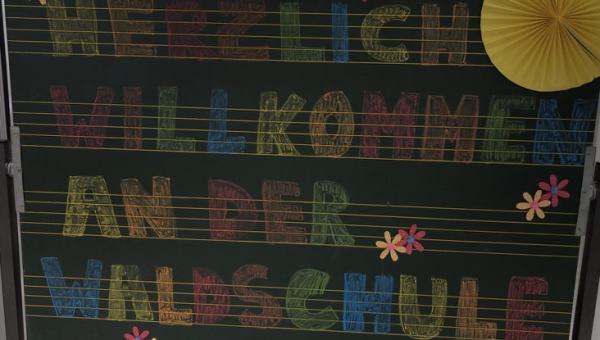 HERZLICH
WILLKOMMEN
AN DER
WALDSCHULE